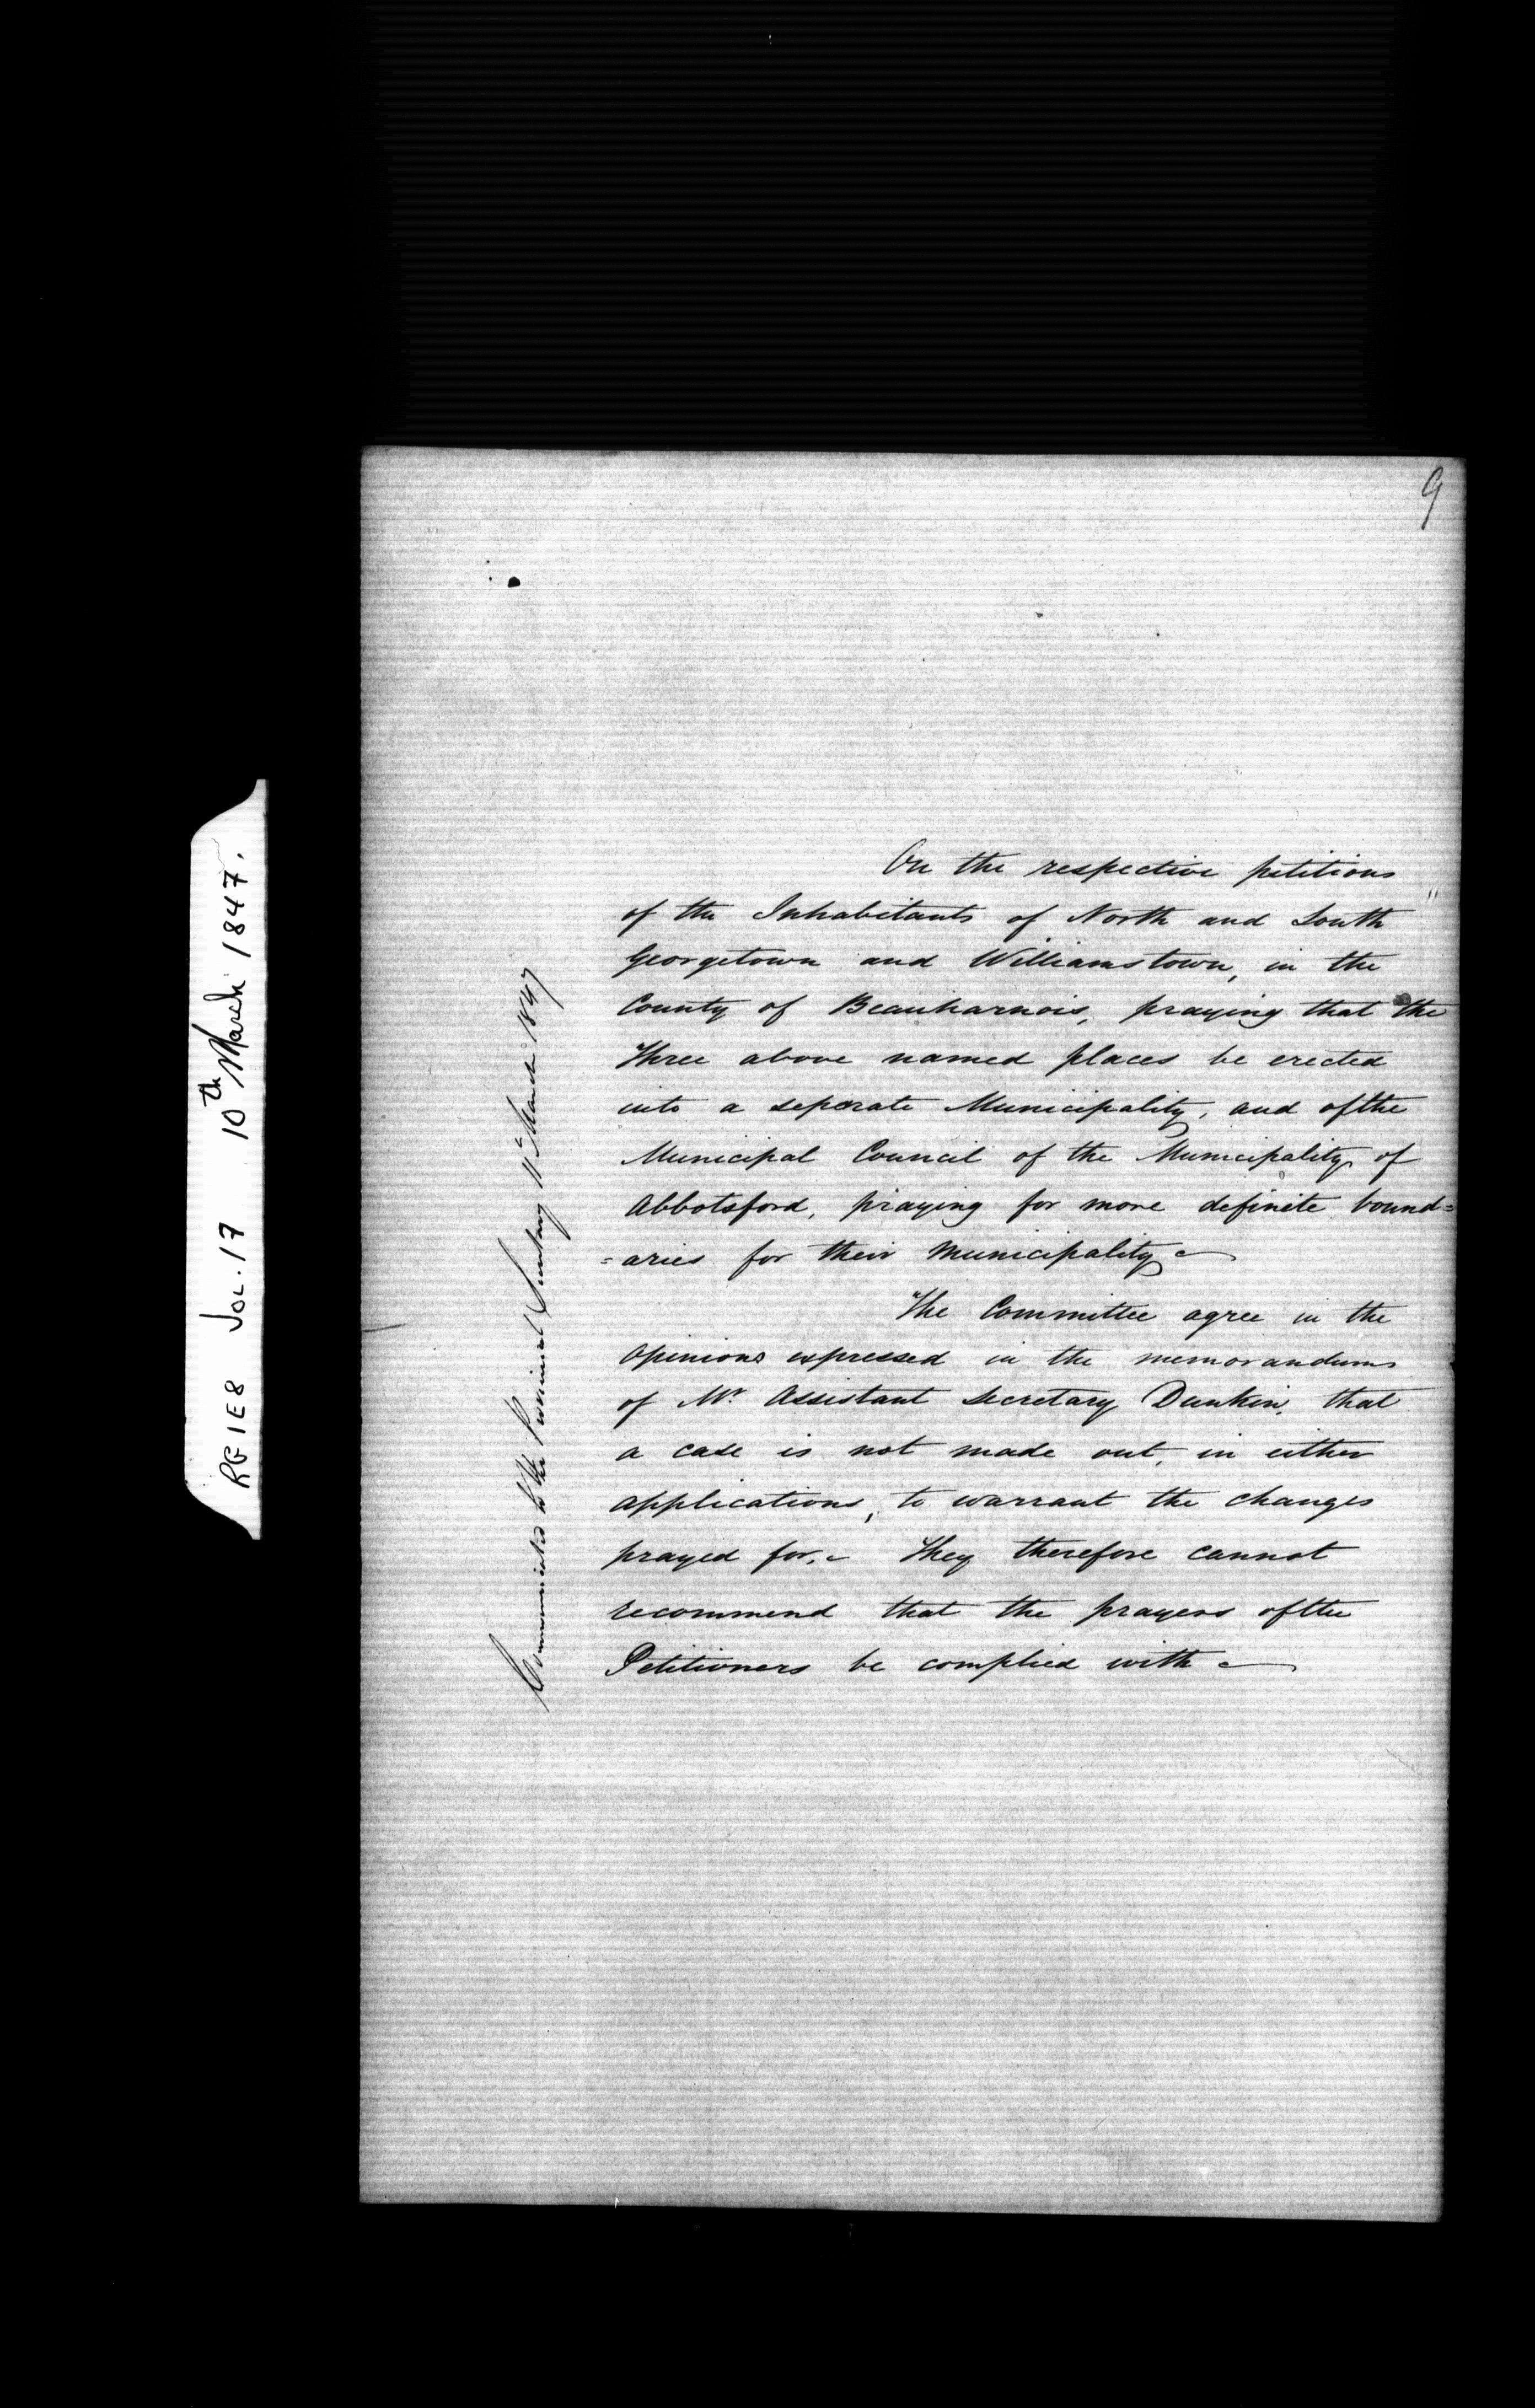 RG 1 E 8 Vol. 17 10th March 1847.
9
On the respective petitions
of the Inhabitants of North and South
Georgetown and Williamstown, in the
County of Beauharnois, praying that the
Three above named places be erected
into a seperate Municipality, and of the
Municipal Council of the Municipality of
Abbotsford, praying for more definite bound=
=aries for their Municipality
The Committee agree in the
opinions expressed in the memorandums
of Mr Assistant Secretary Dunkin, that
a case is not made out, in either
applications, to warrant the changes
prayed for. They therefore cannot
recommend that the prayers of the
Petitioners be complied with
to the Provincial Secretary 11th March 1847